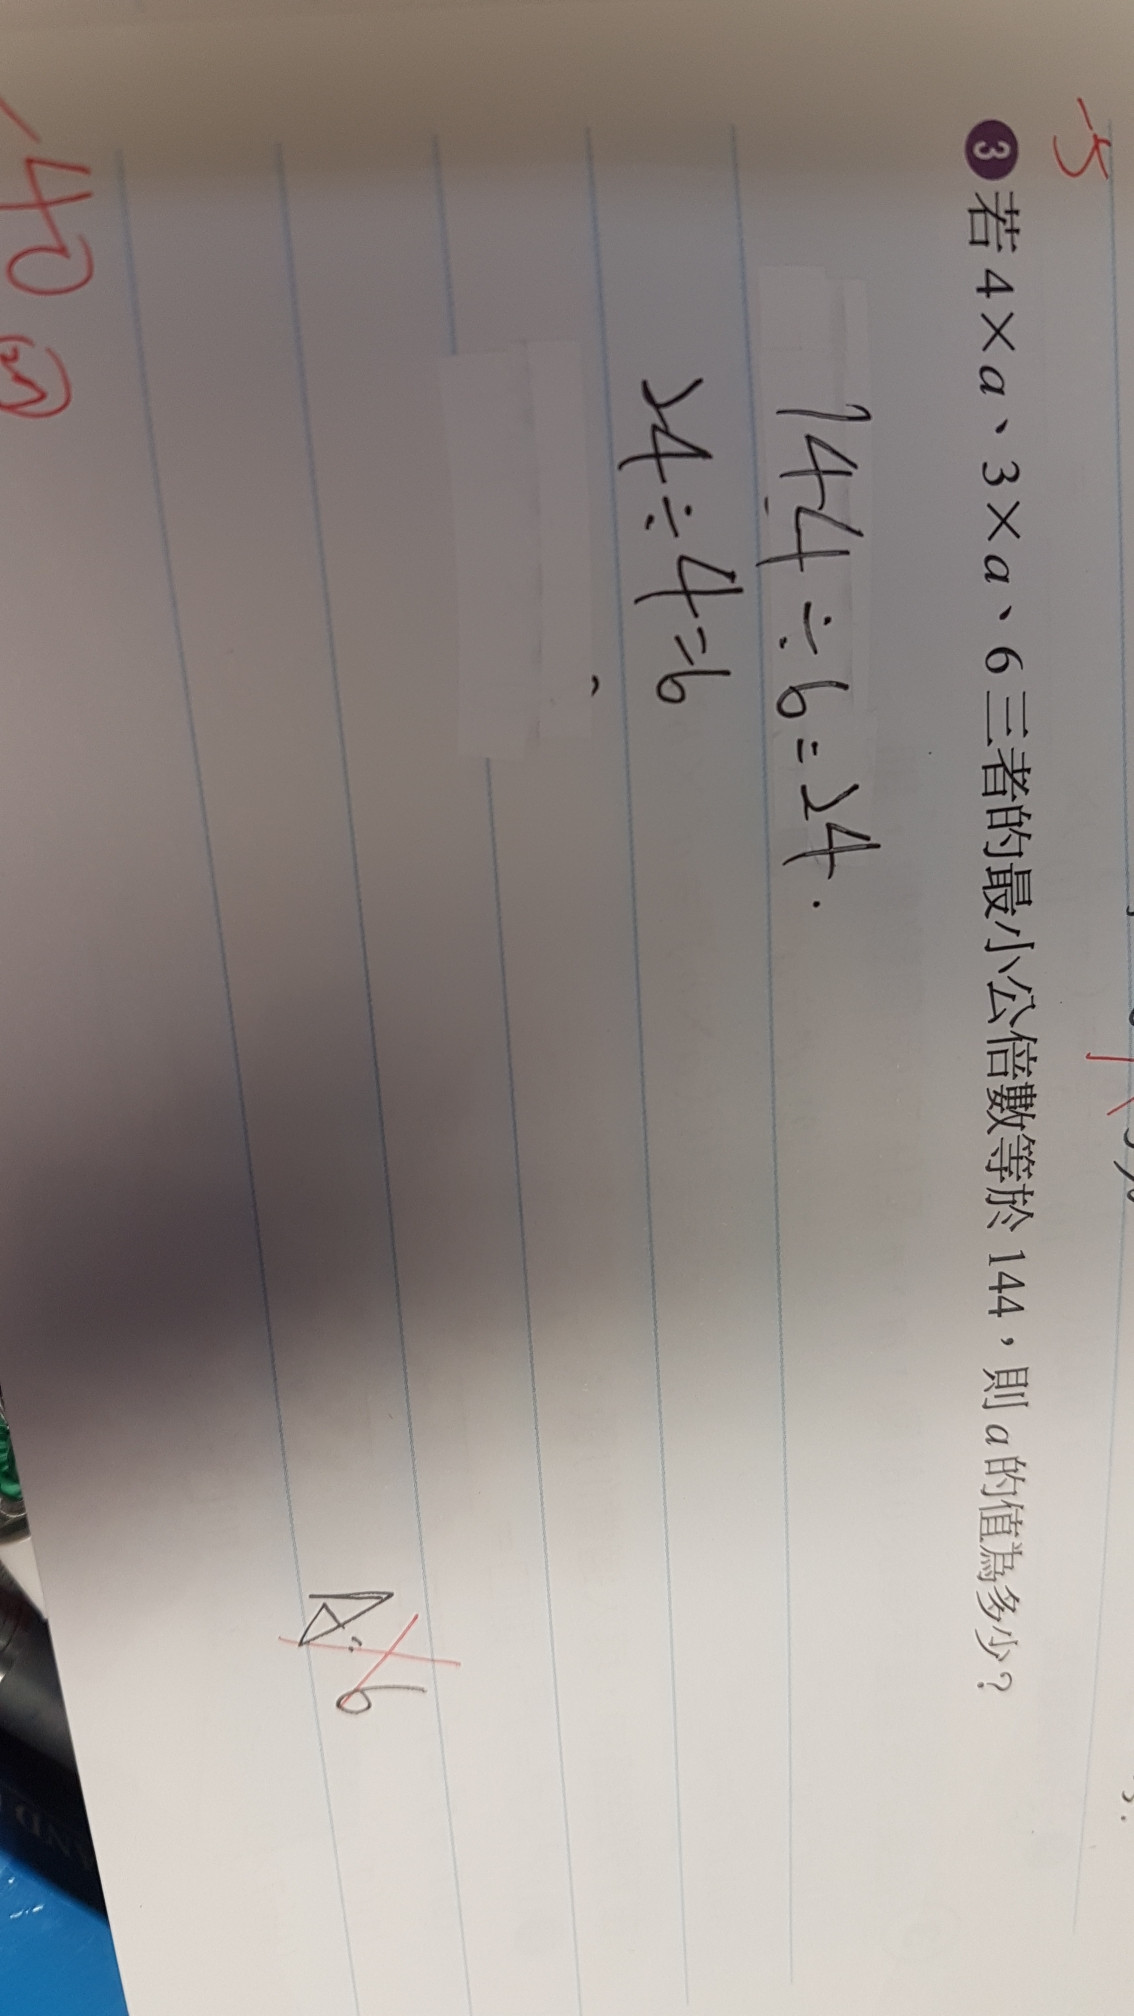 -5
3 若4×a、3×a、6三者的最小公倍數等於144，則a的值為多少？
144÷6=24.
24÷4=6
A:6
-40